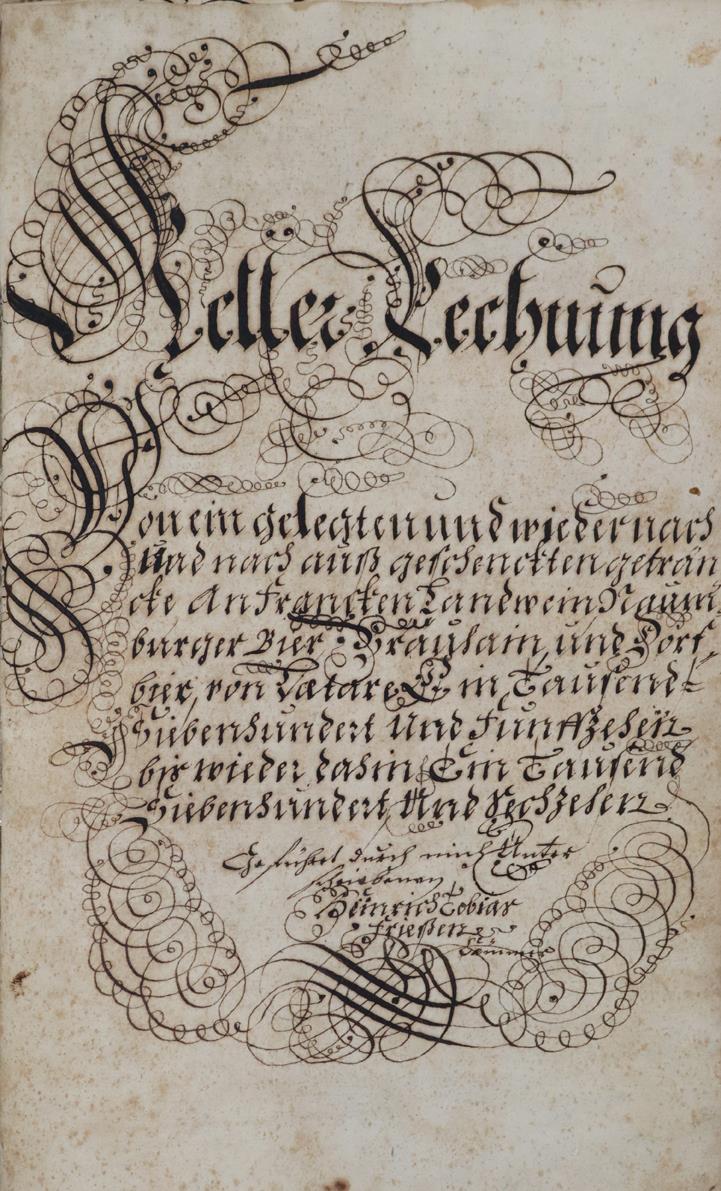 Keller Rechnung
Von ein gelegten und wieder nach
Und nach auß geschenckten geträn
cke An Francken Landwein Naum,
burger Bier Braulain, und Dorf,
bier, von Lætare Ein Tausend
Siebenhundert Und Funffzehen
bis wieder dahin Ein Tausend
Siebenhundert Und Sechzehen
Geführet durch mich Unter
schriebenen
Heinrich Tobias
Frießen